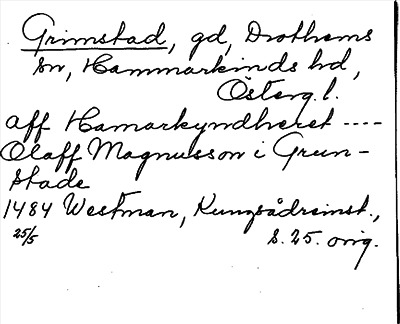 Grimstad, gd, Drothems
sn, Hammarkinds hd,
Österg. l.
aff Hamarkyndheret ----
Olaff Magnusson i Grun-
stade
1484 Westman, Kungsådreinst.,
25/5 S. 25. orig.